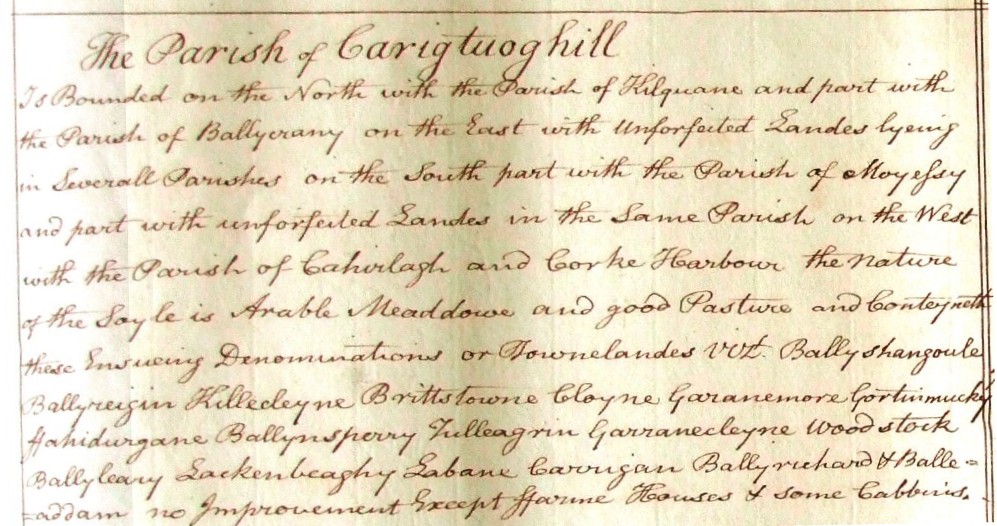 The Parish of Carigtuoghill
Is Bounded on the North with the Parish of Kilquane and part with
the Parish of Ballycrany on the East with Unforfeited Landes lyeing
in Severall Parishes on the South part with the Parish of Moyessy
and part with unforfeited Landes in the Same Parish on the West
with the Parish of Cahirlagh and Corke Harbour the nature
of the Soyle is Arable Meaddowe and good Pasture and Conteyneth
these Ensueing Denominations or Townelandes vizt. Ballyshangoule
Ballyreigin Killecleyne Brittstowne Cloyne Garanemore Gortinmucky
ffahidurgane Ballynsperry Tulleagrin Garranecleyne Woodstock
Ballyleary Lackenbeaghy Labane Carrigan Ballyrichard & Balle=
=addam no Improvement Except ffarme Houses & some Cabbins.